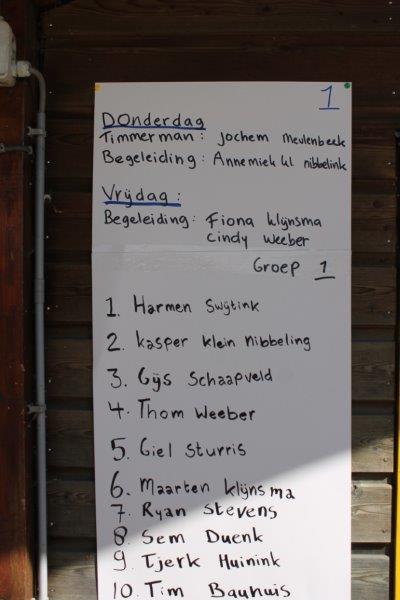 1
Donderdag
Timmerman: Jochem Meulenbeek
Begeleiding: Annemiek kl nibbelink
Vrijdag:
Begeleiding: Fiona Klijnsma
Cindy Weeber
Groep 1
1. Harmen Swijtink
2. kasper klein Nibbeling
3. Gijs Schaapveld
4. Thom Weeber
5. Giel Sturris
6. Maarten Klijnsma
7. Ryan Stevens
8. Sem Duenk
9. Tjerk Huinink
10. Tim Bauhuis